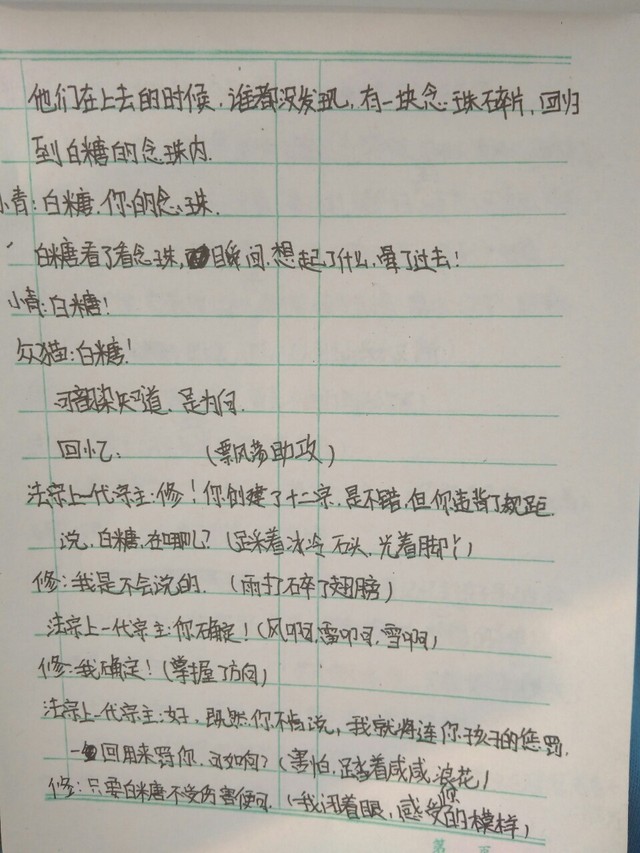 他们在上去的时候,谁都没发现,有一块念珠碎片,回归
到白糖的念珠内.
小青:白糖.你的念珠.
白糖看了看念珠,瞬间.想起了什么,晕了过去!
小青:白糖!
众猫:白糖!
可都染知道,是为何.
回忆: (飘风荡助攻)
法宗上一代宗主:修!你创建了十二宗,是不错,但你违背了规距.
说,白糖,在哪儿?(踩着冰冷石头,光着脚丫)
修:我是不会说的.(雨打碎了翅膀)
法宗上一代宗主:你不确定!(风啊,雪啊,雪啊)
修:我确定!(掌握了方向)
法宗上一代宗主:好,既然你不肯说,我就将连你孩子的惩罚.
一回用来罚你,可如何?(害怕,踏着咸咸浪花)
修:只要白糖不受伤害便可.(我闭着眼,感受你的模样)
第 页